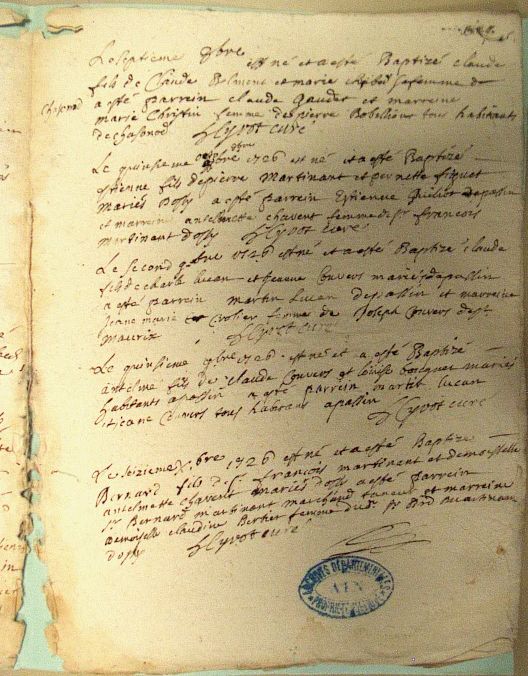 Le septieme 9bre est né et a esté Baptizé claude
fils de Claude et marie sa femme
a esté parrein claude et marreine
Chasonod
marie Christin femme de pierre tous habitants
de chasonod Hyvot curé
Le quinsieme 1726 est né et a esté Baptizé
estienne fils de pierre Martinant et pernette
mariés Dosy a esté parrein Estienne
et marreine antelmette chavent femme de Sr françois
martinant dosy Hyvot curé
Le second 9bre 1726 est né et a esté Baptizé claude
fils de charle lucan et couvers mariés de passin
a esté parrein martin Lucan de passin et marreine
Jeane marie femme de Joseph Couvers de St
Maurix Hyvot curé
Le quinsieme 9bre 1726 est né et a esté Baptizé
antelme fils de claude Couvers et louise mariés
habitants a passin a esté parrein martit Lucan
et Jeane Couvers tous habitans a passin
Hyvot curé
Le seizieme bre 1726 est né et a esté Baptizé
Bernard fils de Sr françois martinant et demoiselle
antelmette chavent mariés Dosy a esté parrein
Sr Bernard martinant marchand taneur et marreine
Demoiselle claudine Bertier femme du Sr
dosy Hyvot curé
ARCHIVES DÉPARTEMENTALES
AIN
PROPRIÉTÉ PUBLIQUE